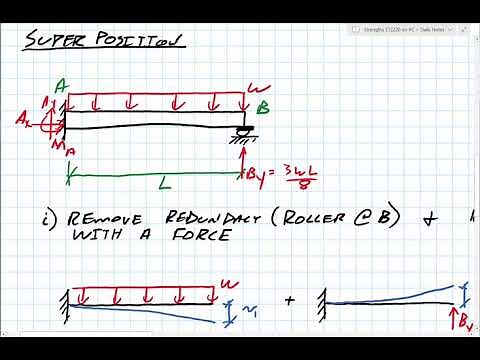 Strengths ET2220 on PC > Daily Notes
SUPER POSITION
A
W
B
Ax
MA
L
By = 3WL/8
i) REMOVE REDUNDACY (ROLLER @ B) &
WITH A FORCE
W
+
By